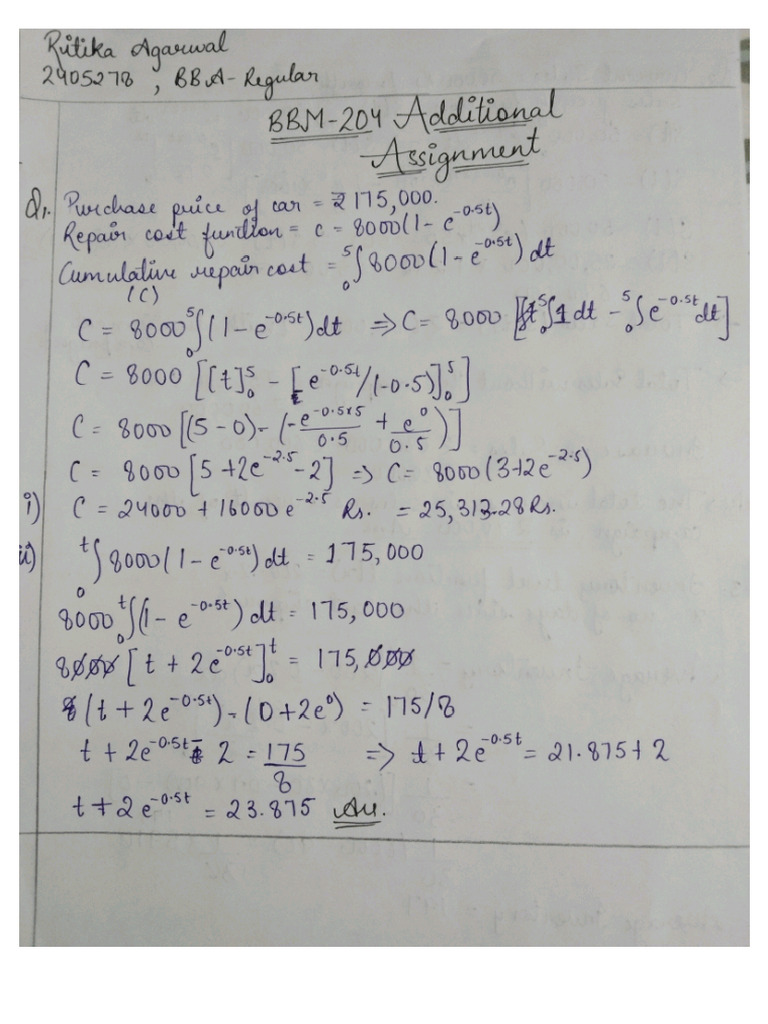 Ritika Agarwal
2405278 , BBA-Regular
BBM-204 Additional
Assignment
Q1. Purchase price of car = ₹175,000.
Repair cost function = c = 8000(1 - e^-0.5t)
Cumulative repair cost = ₀∫⁵ 8000(1 - e^-0.5t) dt
(C)
C = 8000 ₀∫⁵ (1 - e^-0.5t) dt => C = 8000 [₀∫⁵ 1 dt - ₀∫⁵ e^-0.5t dt]
C = 8000 [[t]₀⁵ - [e^-0.5t/(-0.5)]₀⁵]
C = 8000 [(5 - 0) - (-e^-0.5×5/0.5 + e^0/0.5)]
C = 8000 [5 + 2e^-2.5 - 2] => C = 8000 (3+2e^-2.5)
i) C = 24000 + 16000 e^-2.5 Rs. = 25,313.28 Rs.
ii) ₀∫ᵗ 8000(1 - e^-0.5t) dt = 175,000
8000 ₀∫ᵗ (1 - e^-0.5t) dt = 175,000
8000 [t + 2e^-0.5t]₀ᵗ = 175,000
(t + 2e^-0.5t) - (0 + 2e^0) = 175/8
t + 2e^-0.5t - 2 = 175/8 => t + 2e^-0.5t = 21.875 + 2
t + 2e^-0.5t = 23.875 Ans.